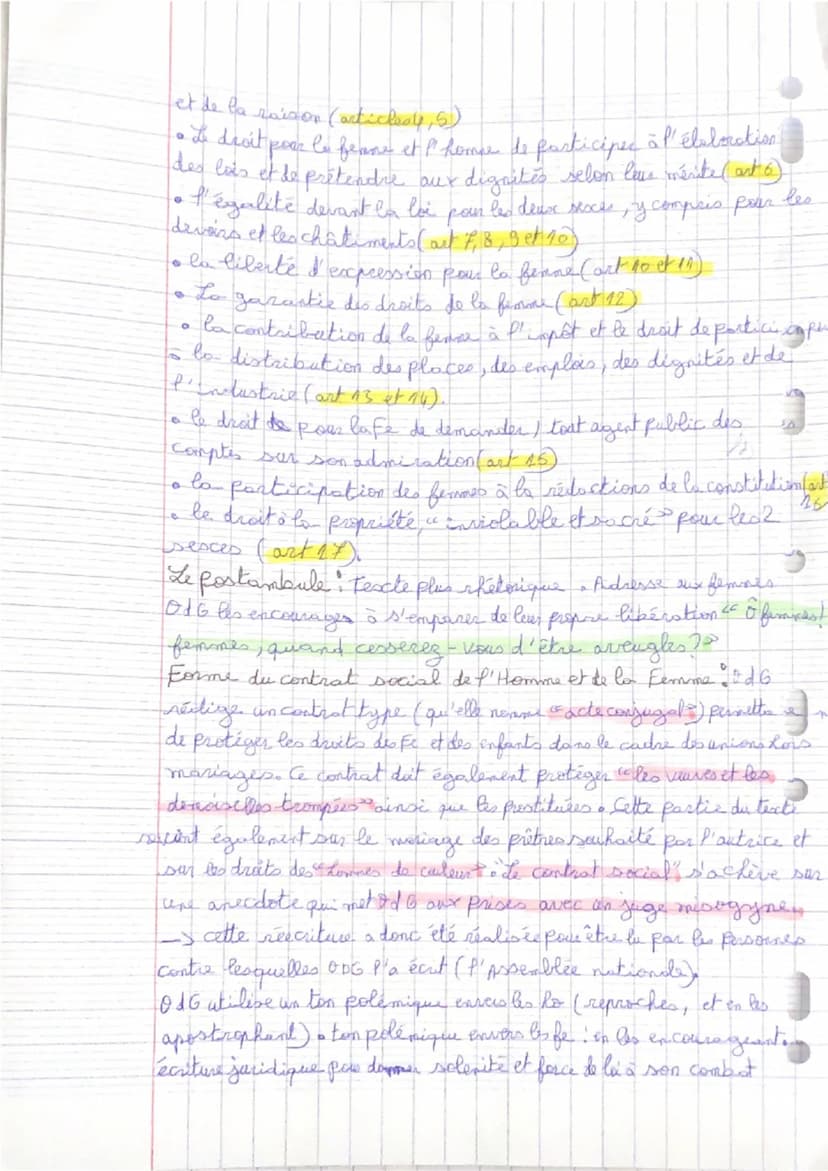 et de la raison (articles 4, 5)
• Le droit pour la femme et l'homme de participer à l'élaboration
des lois et de prétendre aux dignités selon leur mérite (art 6)
• l'égalité devant la loi pour les deux sexces, y compris pour les
devoirs et les châtiments (art 7, 8, 9 et 10)
• la liberté d'expression pour la femme (art 10 et 11)
• La garantie des droits de la femme (art 12)
• la contribution de la femme à l'impôt et le droit de participer
à la distribution des places, des emplois, des dignités et de
l'industrie (art 13 et 14).
• le droit pour la fe de demander à tout agent public des
comptes sur son admiration (art 15)
• la participation des femmes à la rédactions de la constitution (art 16)
• le droit à la propriété, "inviolable et sacré" pour les 2
sexces (art 17).
Le postambule : Texcte plus rhétorique. Adresse aux femmes
OdG les encourages à s'emparer de leur propre libération "Ô femmes!
femmes, quand cesserez-vous d'être aveugles?"
Forme du contrat social de l'Homme et de la Femme : OdG
rédige un contrat type (qu'elle nomme "acte conjugal") permettant
de protéger les droits des Fe et des enfants dans le cadre des unions hors
mariages. Ce contrat doit également protéger "les veuves et les
demoiselles trompées" ainsi que les prostituées. Cette partie du texte
revient également sur le mariage des prêtres souhaité par l'autrice et
sur les droits des "hommes de couleur". "Le contrat social" s'achève sur
une anecdote qui met OdG aux prises avec un juge misogyne.
-> cette réécriture a donc été réalisée pour être lu par les personnes
contre lesquelles ODG l'a écrit (l'Assemblée nationale).
OdG utilise un ton polémique envers les ho (reproches, et en les
apostrophant). ton polémique envers les fe : en les encourageant.
écriture juridique pour donner solenité et force de loi à son combat